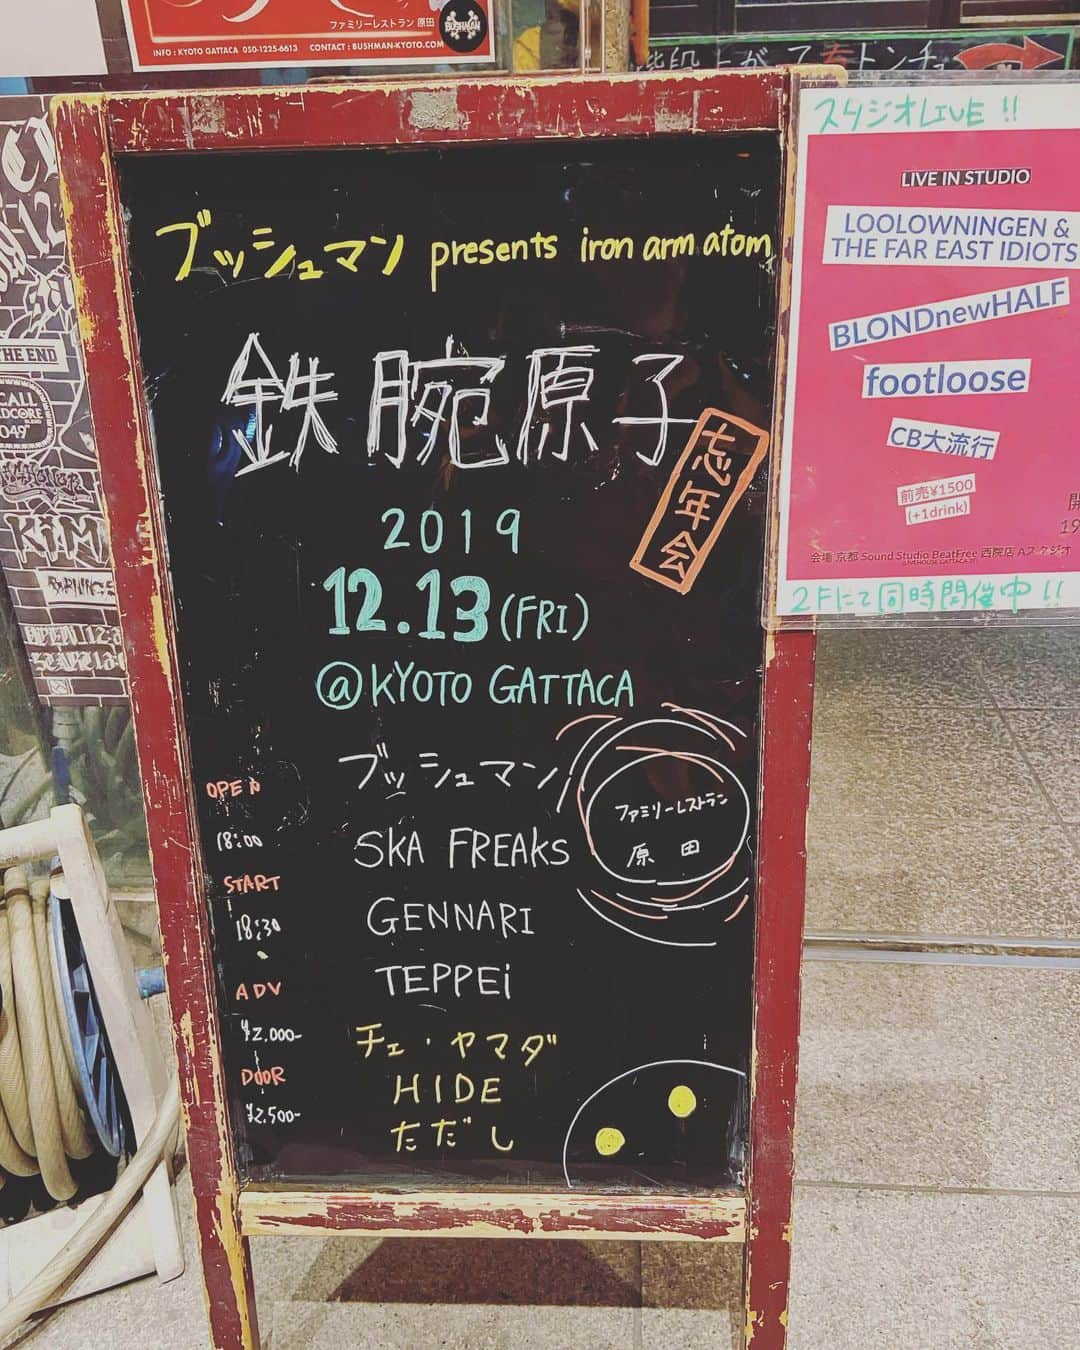 ファミリーレストラン 原田
INFO : KYOTO GATTACA 050-1225-6613 CONTACT : BUSHMAN-KYOTO.COM
BUSHMAN
ブッシュマン presents iron arm atom
鉄腕原子
忘年会
2019
12.13(FRI)
@KYOTO GATTACA
ブッシュマン
SKA FREAKS
GENNARI
TEPPEi
チェ・ヤマダ
HIDE
ただし
ファミリーレストラン
原田
OPEN
18:00
START
18:30
ADV
¥2,000-
DOOR
¥2,500-
スタジオLIVE !!
LIVE IN STUDIO
LOOLOWNINGEN &
THE FAR EAST IDIOTS
BLONDnewHALF
footloose
CB大流行
前売¥1500
(+1drink)
開
19
会場 京都 Sound Studio BeatFree 西院店 Aスタジオ
2Fにて同時開催中!!
THE END
CALL
049
KiM